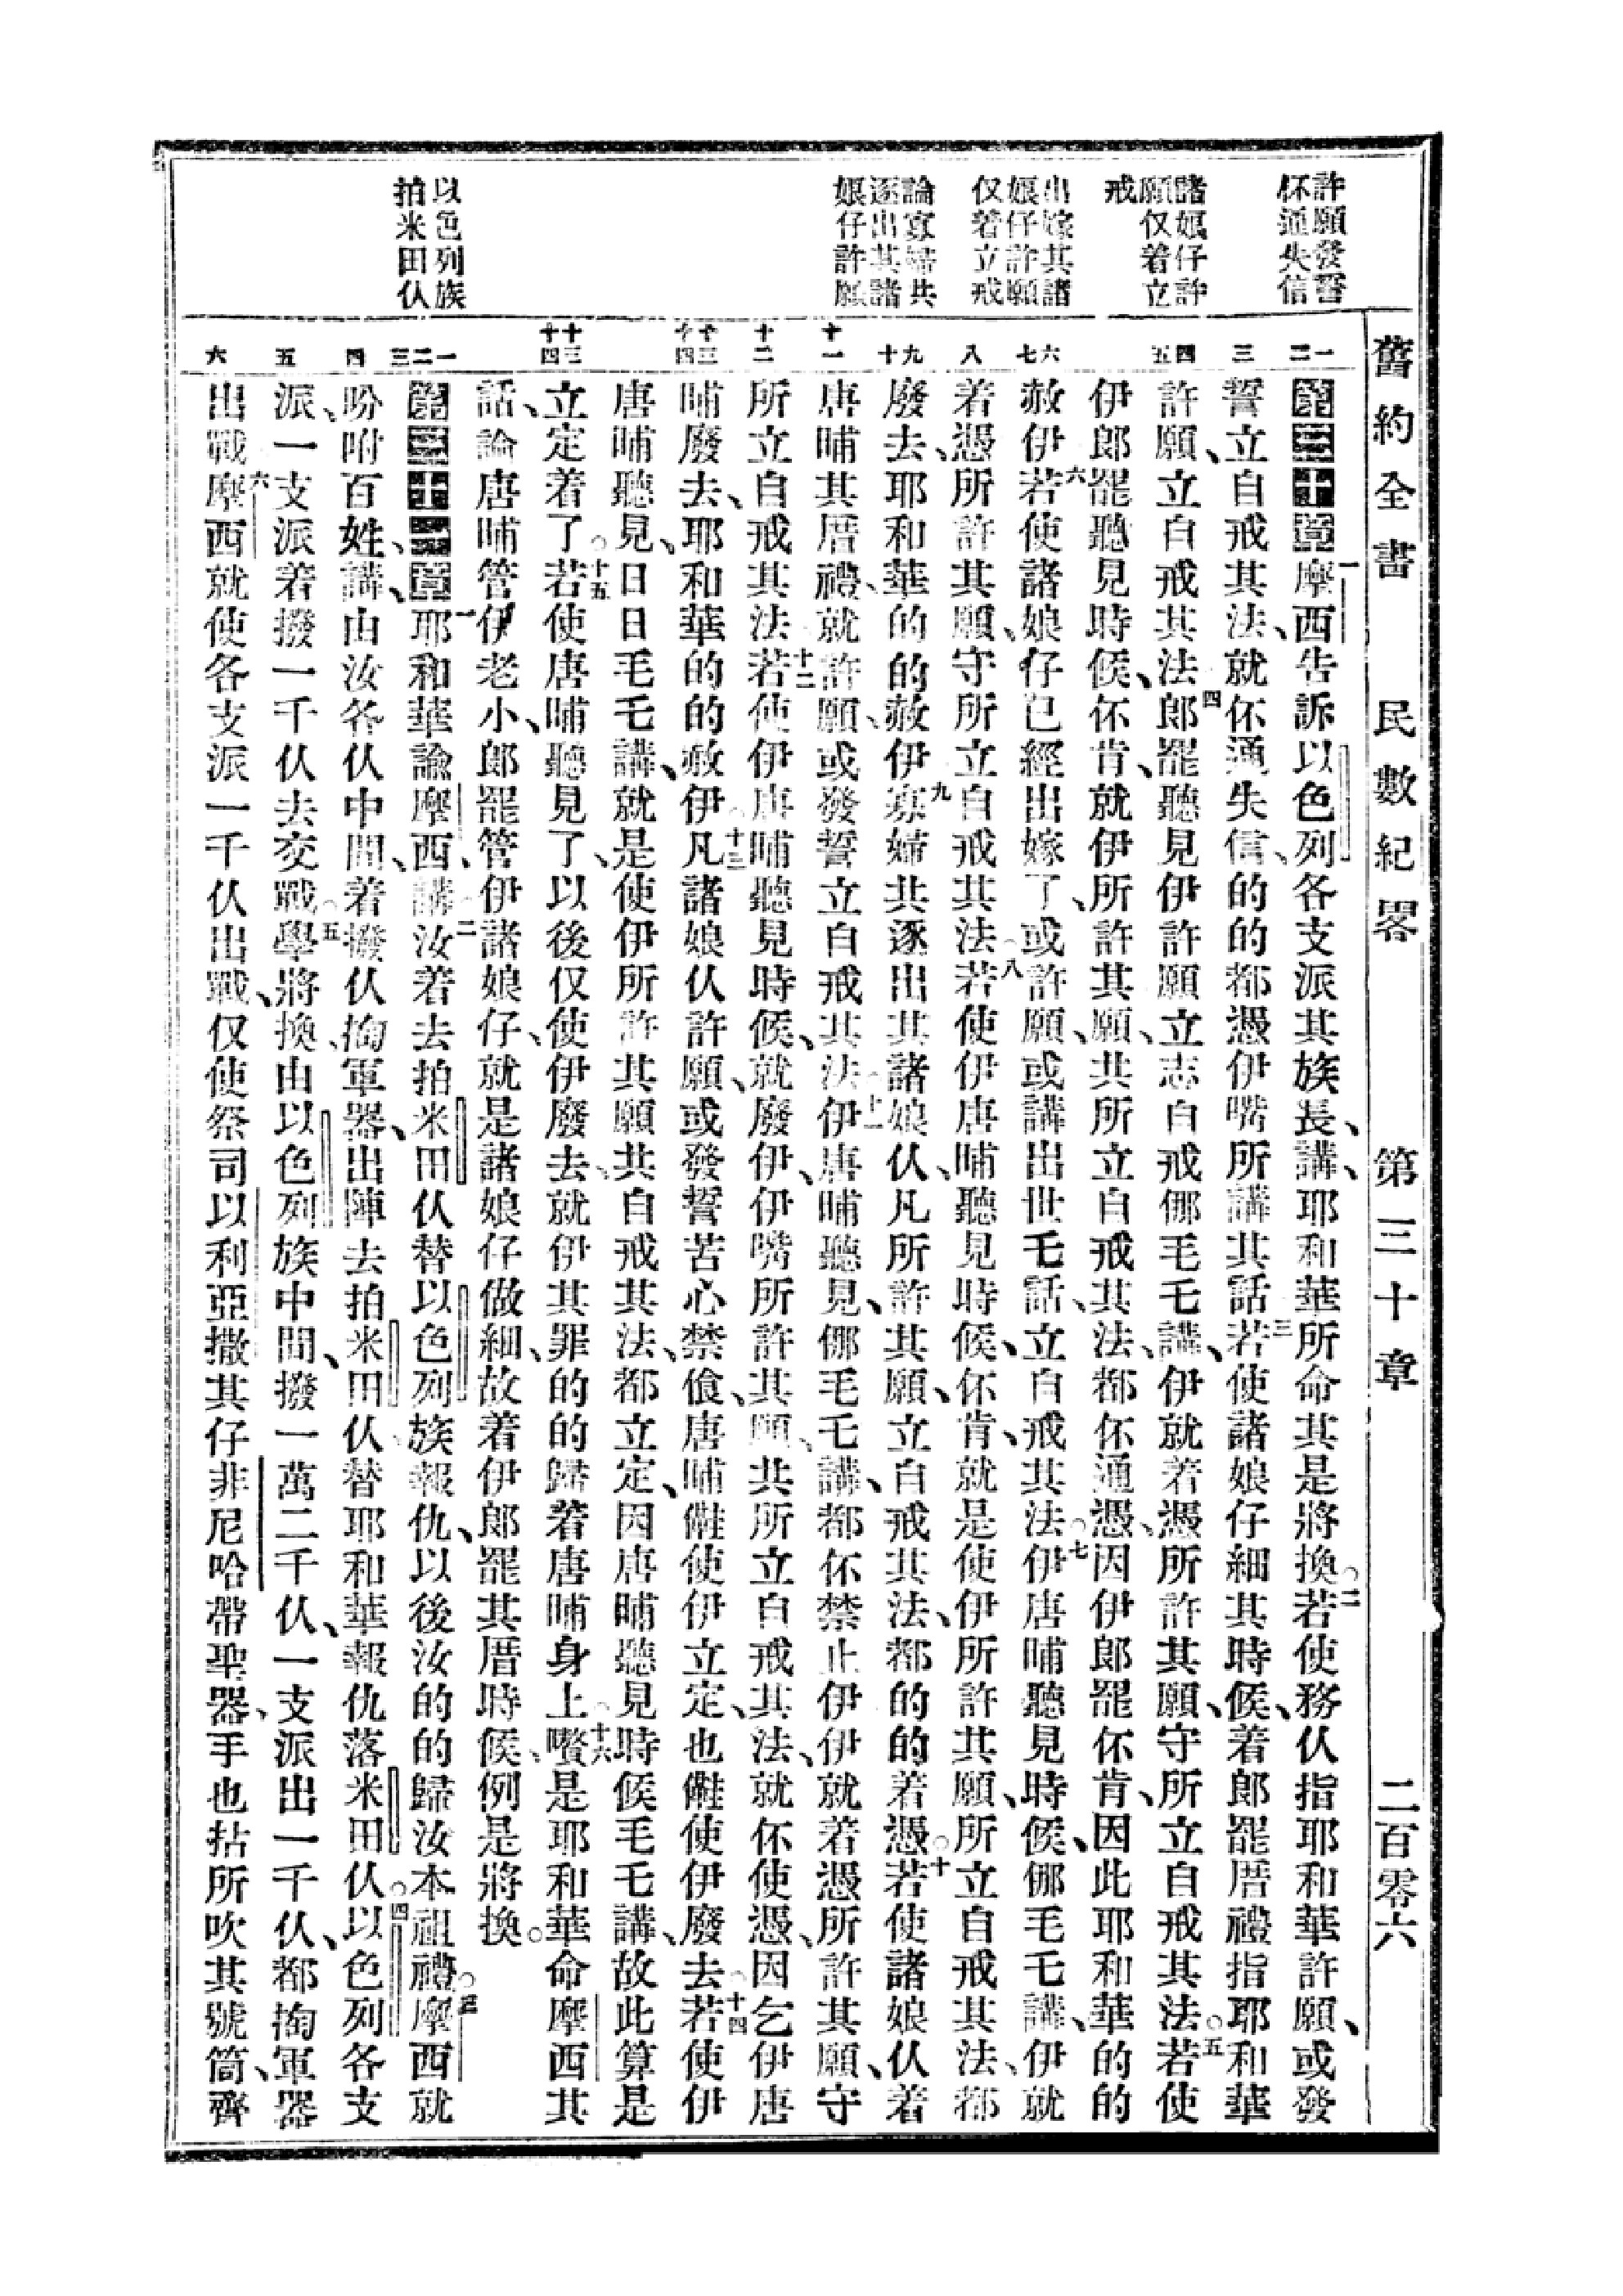 舊約全書 民數紀畧 第三十章 二百零六
許願發誓
伓通失信
諸娘仔許
願仅着立
戒
出嫁其諸
娘仔許願
仅着立戒
論寡婦共
逐出其諸
娘仔許願
以色列族
拍米田仈
一 二 三 四 五 六 七 八 九 十 十一 十二 十三 十四 十三 十四 一 二 三 四 五 六
第三十章一摩西告訴以色列各支派其族長、講、耶和華所命其是將換。二若使務仈指耶和華許願、或發
誓立自戒其法、就伓通失信、的的都憑伊嘴所講其話。三若使諸娘仔細其時候、着郎罷厝禮指耶和華
許願、立自戒其法、四郎罷聽見伊許願立志自戒㑚毛毛講、伊就着憑所許其願、守所立自戒其法。五若使
伊郎罷聽見時候、伓肯、就伊所許其願、共所立自戒其法、都伓通憑、因伊郎罷伓肯、因此耶和華的的
赦伊。六若使諸娘仔已經出嫁了、或許願、或講出世乇話、立自戒其法。七伊唐晡聽見時候、㑚毛乇講、伊就
着憑所許其願、守所立自戒其法。八若使伊唐晡聽見時候、伓肯、就是使伊所許其願、所立自戒其法、都
廢去、耶和華的的赦伊。九寡婦共逐出其諸娘仈、凡所許其願、立自戒其法、都的的着憑。十若使諸娘仈着
唐晡其厝禮、就許願、或發誓立自戒其法、十一伊唐晡聽見、㑚毛乇講、都伓禁止伊、伊就着憑所許其願、守
所立自戒其法。十二若使伊唐晡聽見時候、就廢伊、伊嘴所許其願、共所立自戒其法、就伓使憑、因乞伊唐
晡廢去、耶和華的的赦伊。十三凡諸娘仈許願、或發誓苦心禁飡、唐晡使伊立定、也使伊廢去。十四若使伊
唐晡聽見、日日毛乇講、就是使伊所許其願共自戒其法、都立定、因唐晡聽見時候毛乇講、故此算是
立定着了。十五若使唐晡聽見了、以後仅使伊廢去、就伊其罪的的歸着唐晡身上。十六是耶和華命摩西其
話、論唐晡管伊老小、郎罷管伊諸娘仔、就是諸娘仔做細、故着伊郎罷其厝時候、例是將換。
第三十一章一耶和華諭摩西、講、二汝着去拍米田仈替以色列族報仇、以後汝的的歸汝本祖禮。三摩西就
吩咐百姓、講、由汝各仈中間、着撥仈掏軍器、出陣去拍米田仈、替耶和華報仇落米田仈。四以色列各支
派、一支派着撥一千仈去交戰。五學將換、由以色列族中間、撥一萬二千仈、一支派出一千仈、都掏軍器
出戰。六摩西就使各支派一千仈出戰、仅使祭司以利亞撒其仔非尼哈帶聖器、手也拈所吹其號筒、齊